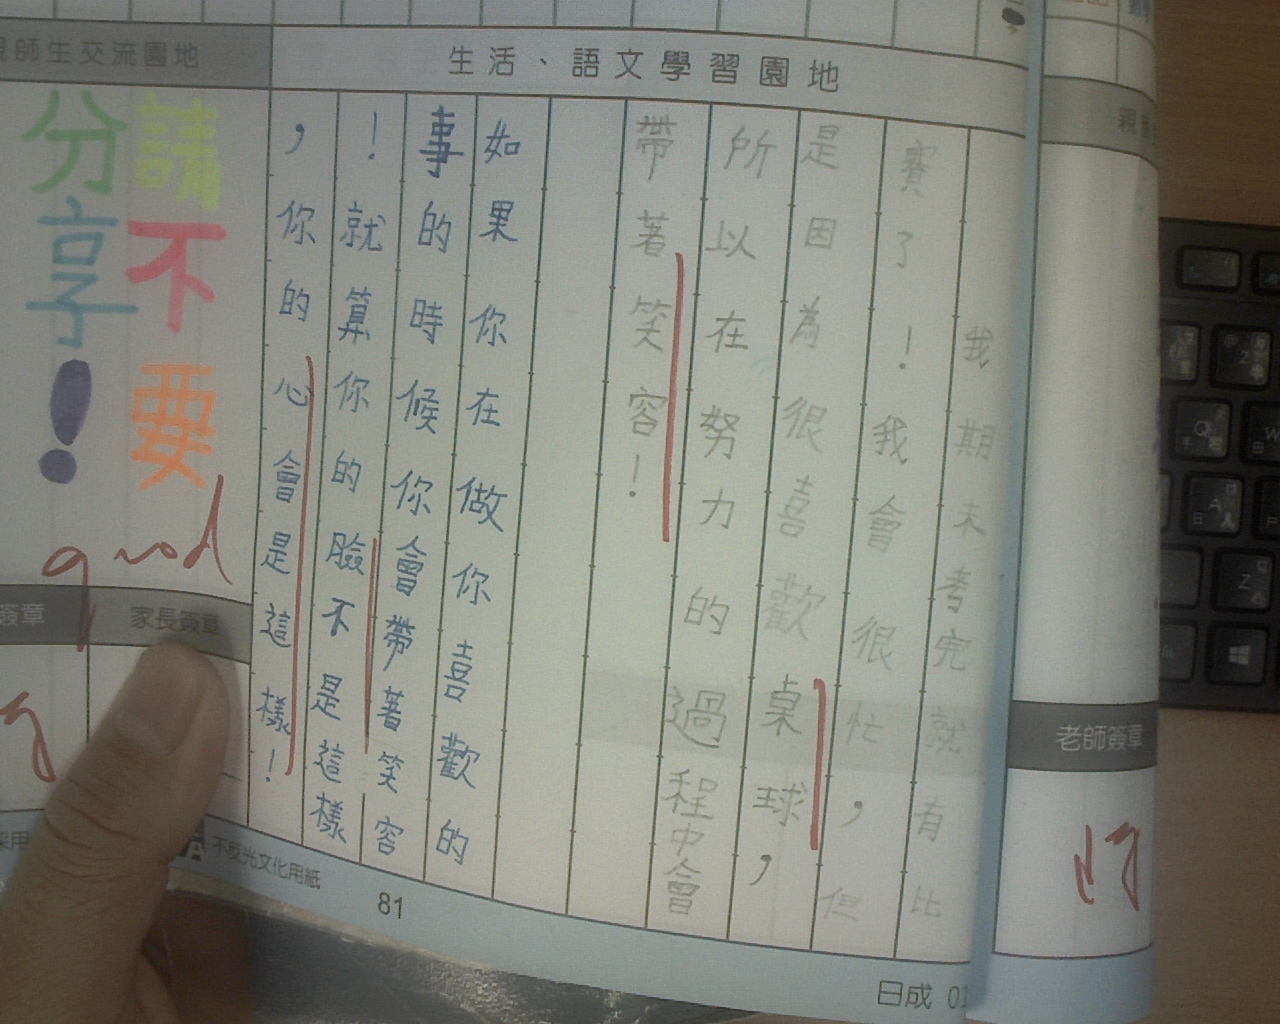 親師生交流園地
生活、語文學習園地
我期末考完就有比
賽了！我會很忙，但
是因為很喜歡桌球，
所以在努力的過程中會
帶著笑容！
如果你在做你喜歡的
事的時候你會帶著笑容
！就算你的臉不是這樣
，你的心會是這樣！
請不要
分享！
good
簽章
家長簽章
老師簽章
不反光文化用紙
81
日成